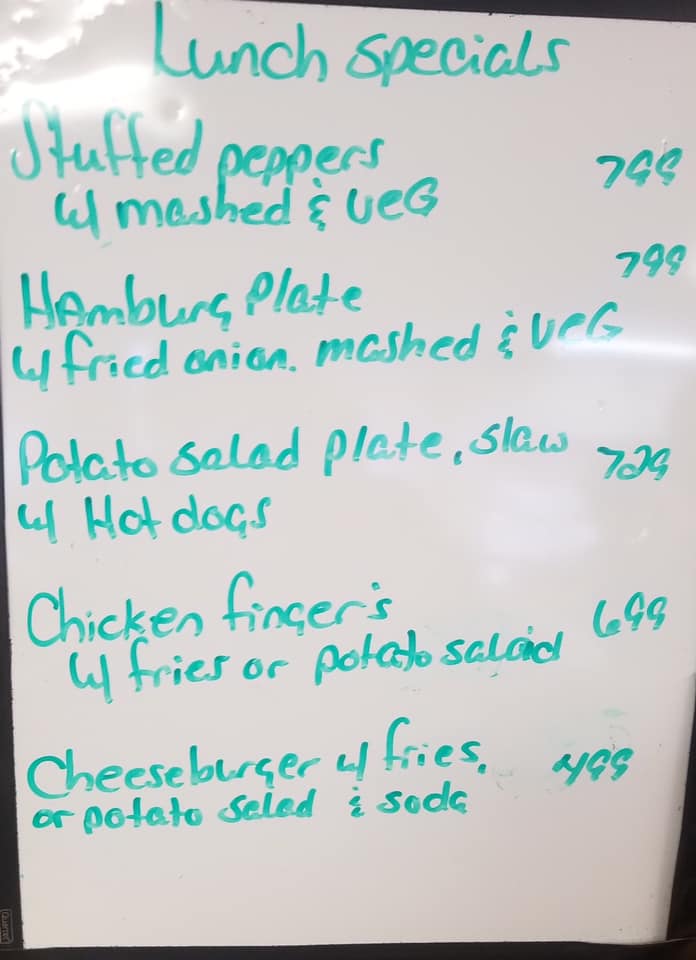 Lunch specials
Stuffed peppers 799
w/ mashed & veG
HAmburg Plate 799
w/ fried onion. mashed & veG
Potato salad plate, slaw 729
w/ Hot dogs
Chicken finger's 699
w/ fries or potato salad
Cheeseburger w/ fries, 499
or potato salad & soda
Quartet